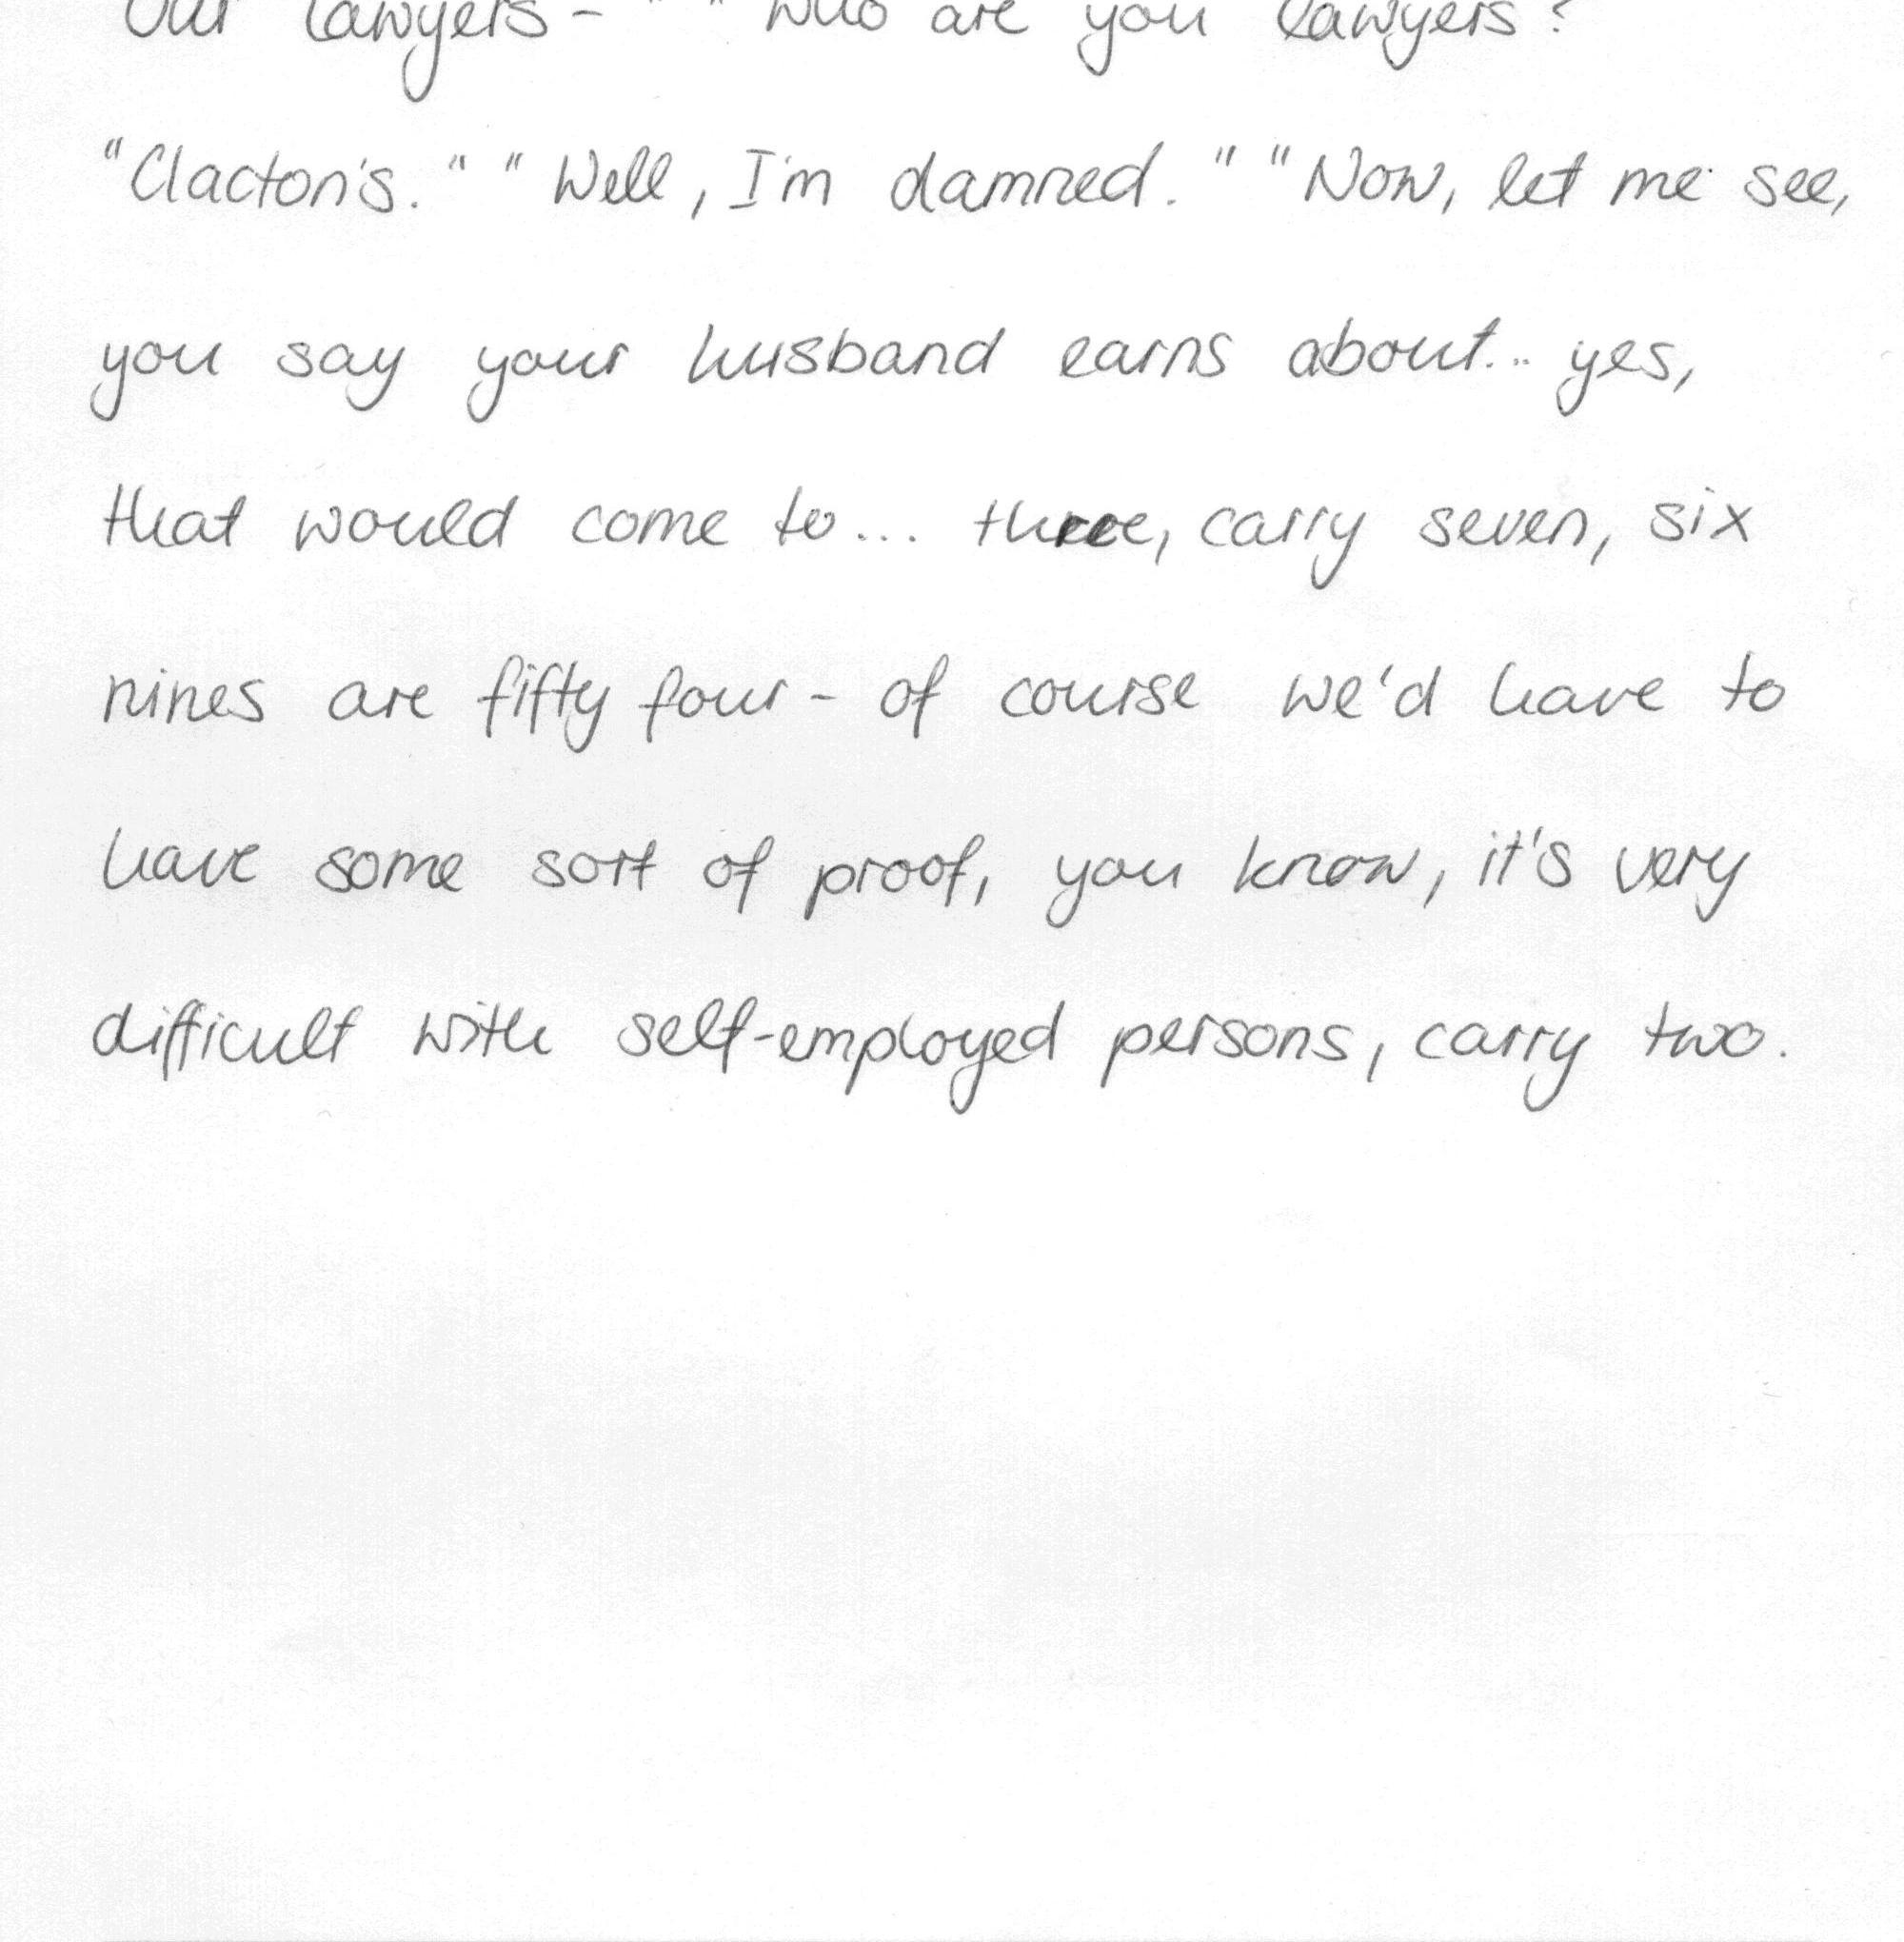 Our lawyers - " " Who are you lawyers?
"Clacton's." "Well, I'm damned." "Now, let me see,
you say your husband earns about... yes,
that would come to... three, carry seven, six
nines are fifty four - of course we'd have to
have some sort of proof, you know, it's very
difficult with self-employed persons, carry two.